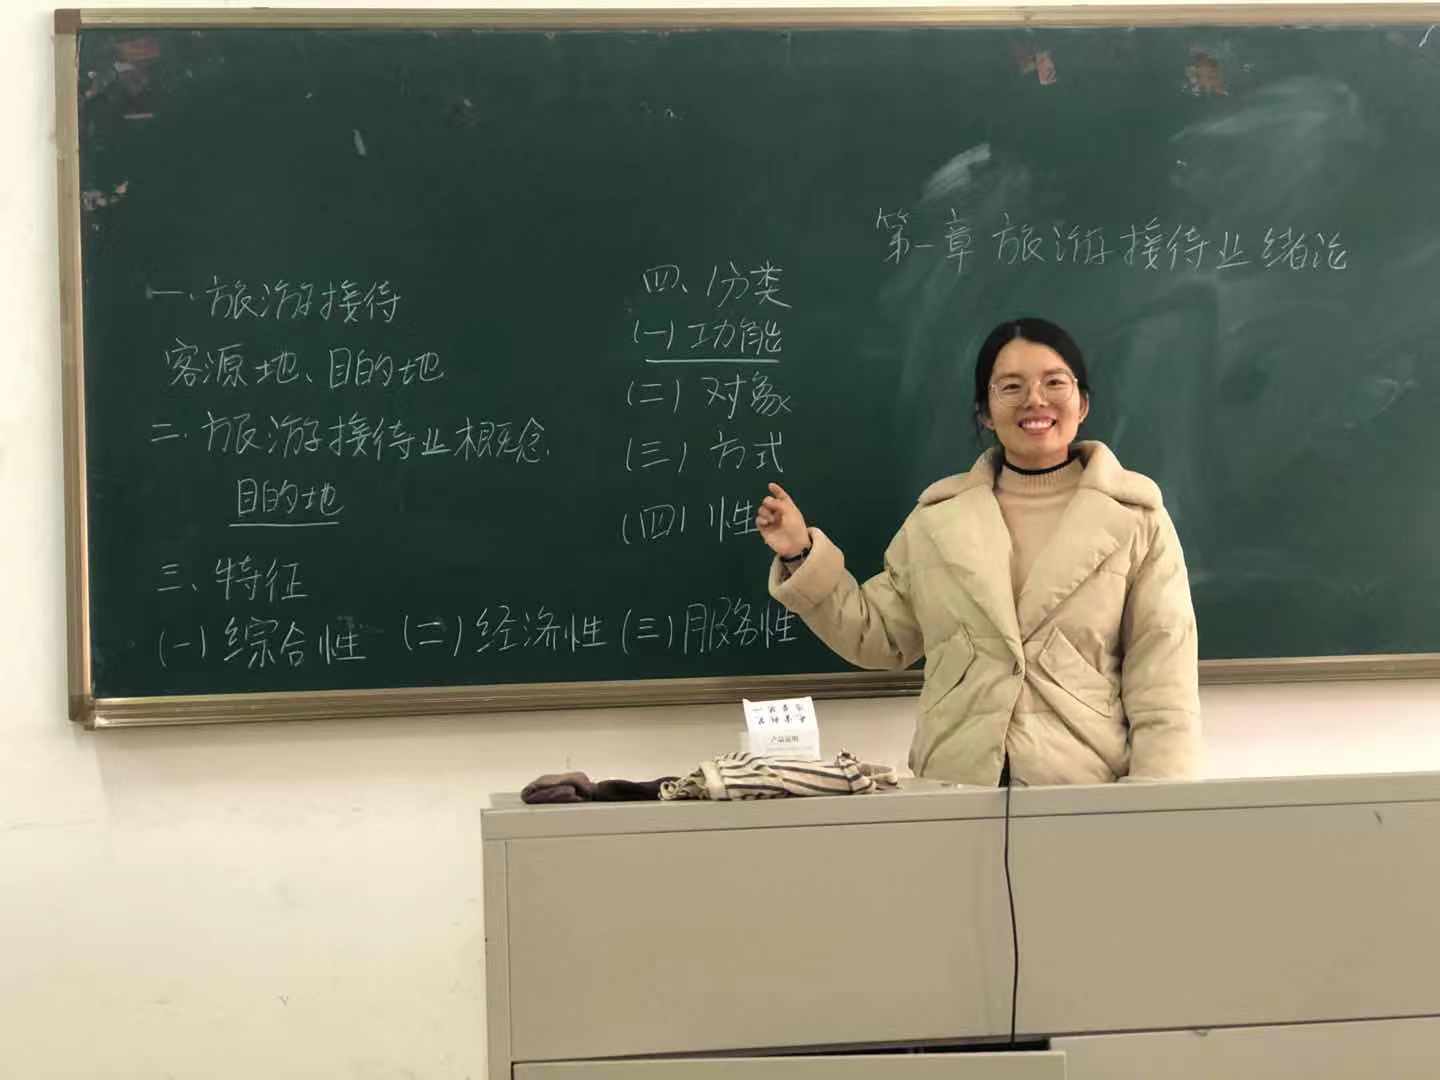 第一章 旅游接待业绪论
一、旅游接待
客源地、目的地
二、旅游接待业概念
目的地
三、特征
(一)综合性 (二)经济性 (三)服务性
四、分类
(一)功能
(二)对象
(三)方式
(四)性
产品说明